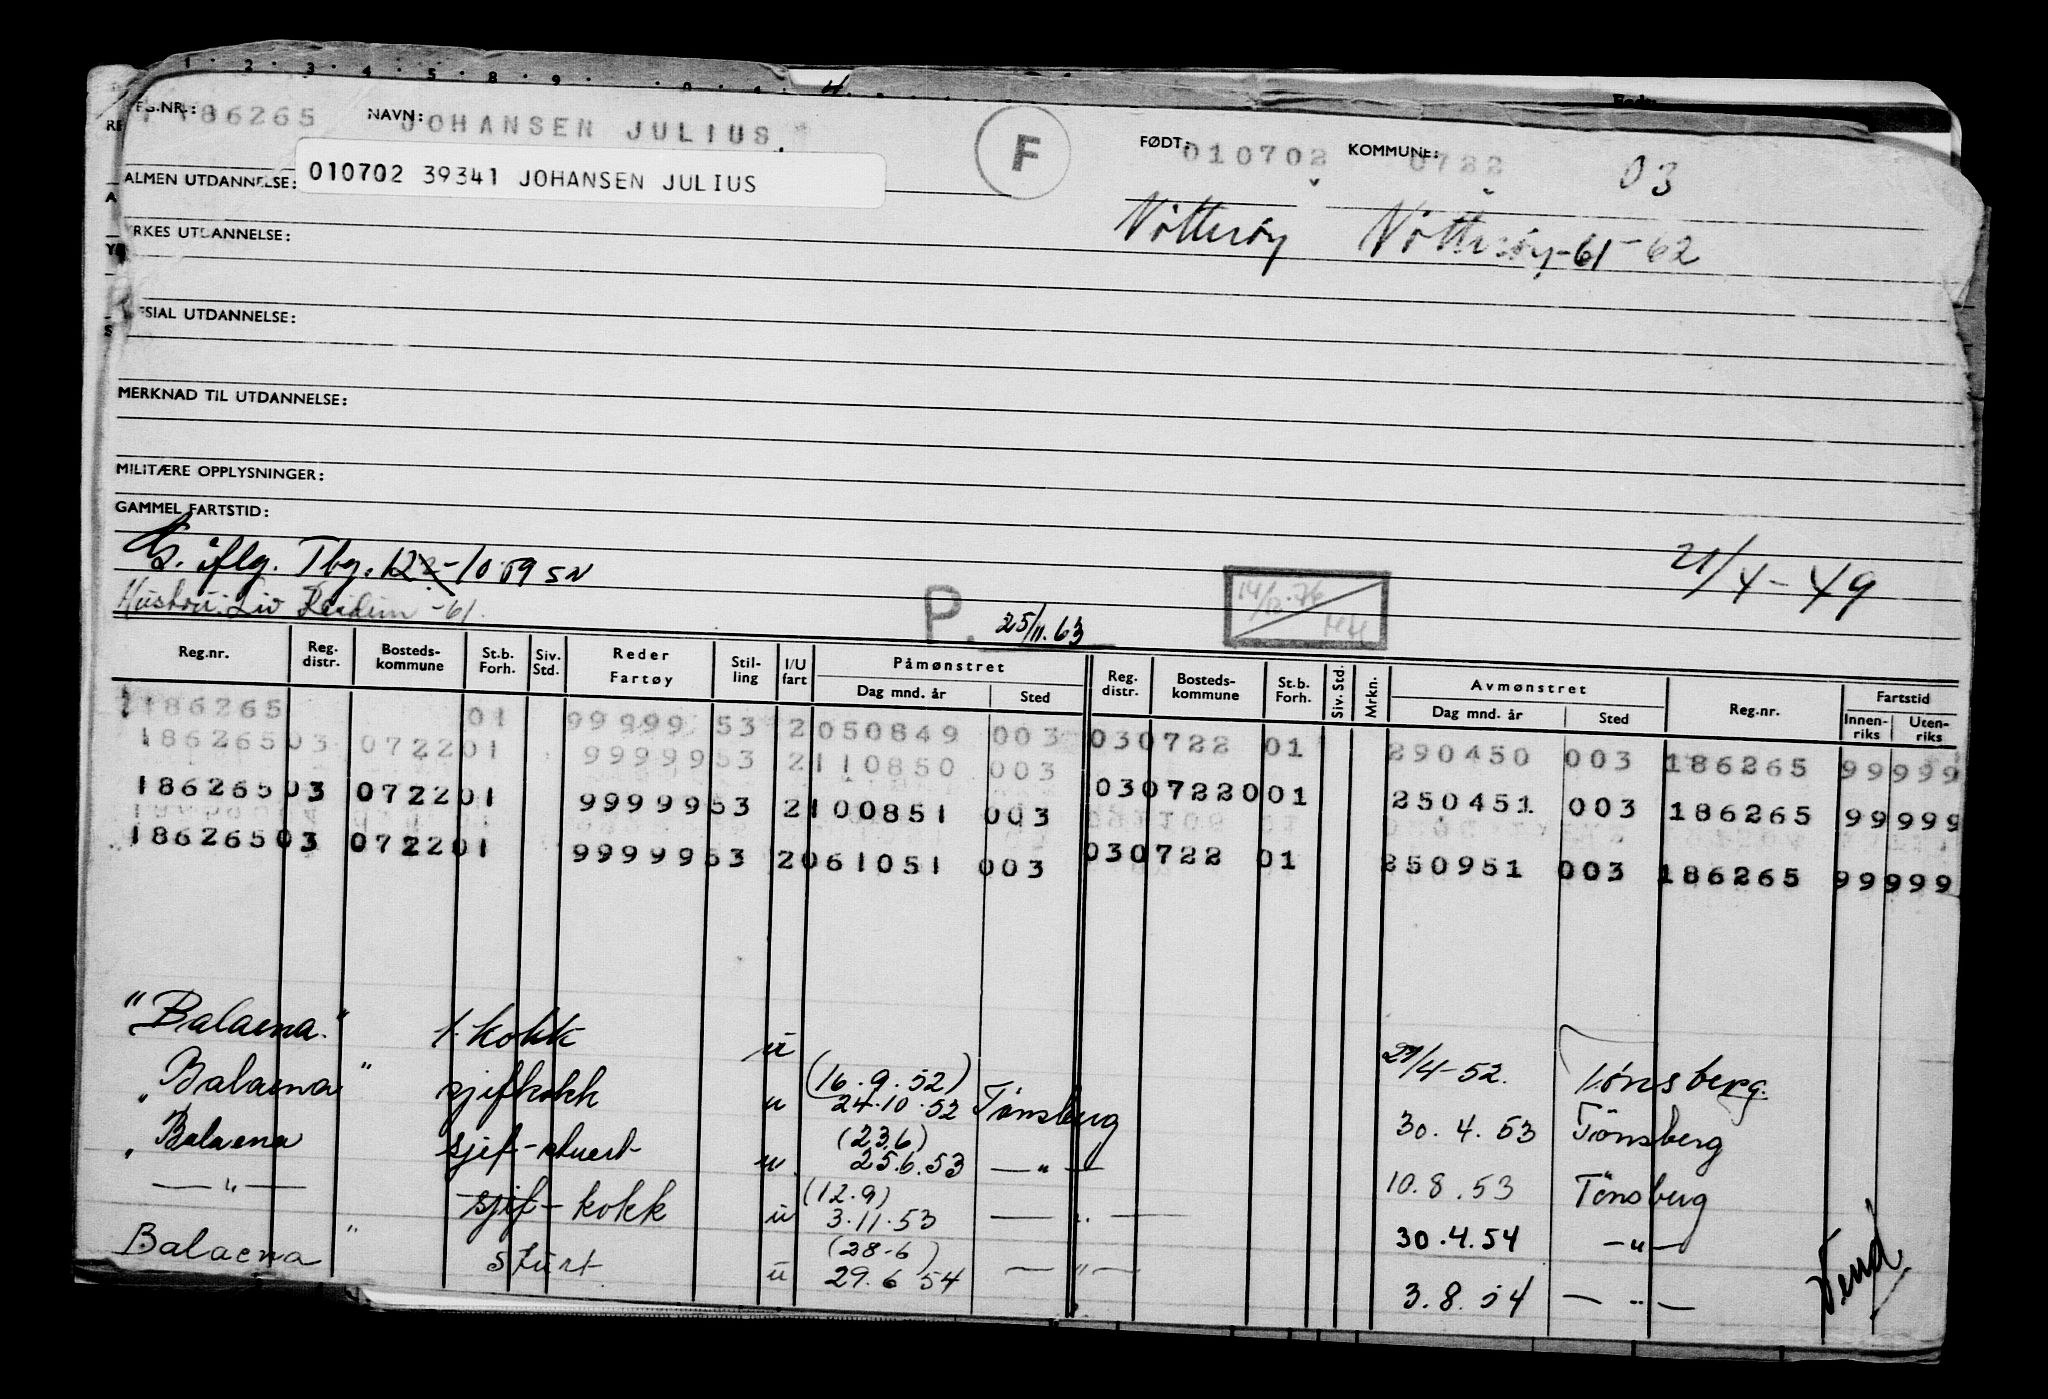 186265 NAVN: JOHANSEN JULIUS. F FØDT: 010702 KOMMUNE: 0722 03
ALMEN UTDANNELSE: 010702 39341 JOHANSEN JULIUS
Nøtterøy Nøtterøy-61-62
RKES UTDANNELSE:
ESIAL UTDANNELSE:
MERKNAD TIL UTDANNELSE:
MILITÆRE OPPLYSNINGER:
GAMMEL FARTSTID:
iflg. Tbg. 21/4-49
Hustru: Liv Reidun -61.
P. 25/11.63
Reg.nr. Reg. distr. Bosteds-kommune St.b. Forh. Siv. Std. Reder Fartøy Stil-ling I/U fart Påmønstret Dag mnd. år Sted Reg. distr. Bosteds-kommune St.b. Forh. Siv. Std. Mrkn. Avmønstret Dag mnd. år Sted Reg.nr. Fartstid Innen-riks Uten-riks
186265 01 99999 53 2 050849 003 030722 01 290450 003 186265 99999
186265 03 0722 01 99999 53 2 110850 003 0307220 01 250451 003 186265 99999
186265 03 0722 01 99999 53 2 100851 003 030722 01 250951 003 186265 99999
186265 03 0722 01 99999 53 2 061051 003
"Balaena." 1. kokk ü 29/4-52. Tønsberg.
"Balaena" sjefkokk u (16.9.52) 24.10.52 Tønsberg 30.4.53 Tønsberg
"Balaena sjef-stuert u. (23.6) 25.6.53 —"— 10.8.53 Tønsberg
—"— sjef-kokk ü (12.9) 3.11.53 —"— 30.4.54 —"—
Balaena" stürt ü (28-6) 29.6 54 —"— 3.8.54 —"—
Vend